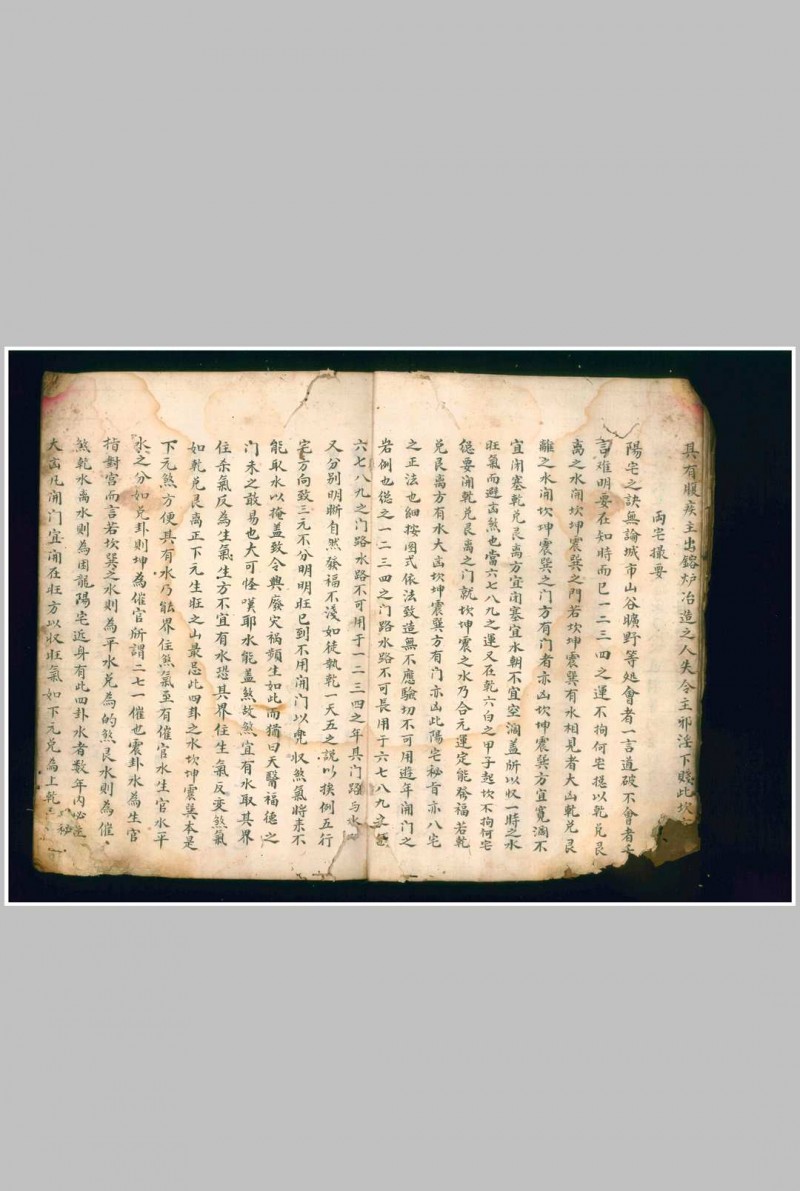 具有服疾主出鎔炉冶造之人失令主邪淫下賤此坎
兩宅撮要
陽宅之訣無論城市山谷曠野等処會者一言道破不會者
言难明要在知時而已一二三四之運不拘何宅揔以乾兑艮
离之水開坎坤震巽之門若坎坤震巽有水相見者大凶乾兑艮
離之水開坎坤震巽之門方有門者亦凶坎坤震巽方宜寬濶不
宜閉塞乾兑艮离方宜閉塞宜水朝不宜空濶盖所以收一時之水
旺氣而避凶煞也當六七八九之運又在乾六白之甲子起坎不拘何宅
揔要開乾兑艮离之门就坎坤震之水乃合元運定能發福若乾
兑艮离方有水大凶坎坤震巽方有门亦凶此陽宅秘旨亦八宅
之正法也細按图式依法致造無不應驗切不可用遊年開门之
岩例也揔之一二三四之门路水路不可長用于六七八九之
六七八九之门路水路不可用于一二三四之年具门路与水
又分别明晰自然發福不淺如徒執乾一天五之説以挨例五行
宅方向致三元不分明明旺已到不用開门以兜收煞氣將来不
能取水以掩盖致令興廢灾禍頻生如此而猶曰天醫福德之
门未之敢易也大可怪嘆耶水能盖煞故煞宜有水取其界
住杀氣反為生氣生方不宜有水恐其界住生氣反变煞氣
如乾兑艮离正下元生旺之山最忌此四卦之水坎坤震巽本是
下元煞方便具有水乃能界住煞氣至有催官水生官水平
水之分如兑卦則坤為催官所謂二七一催也震卦水為生官
指對宮而言若坎巽之水則為平水兑為的煞艮水則為催
煞乾水离水則為困龍陽宅近身有此四卦水者数年内必注
大凶凡開门宜開在旺方以收旺氣如下元兑為上乾